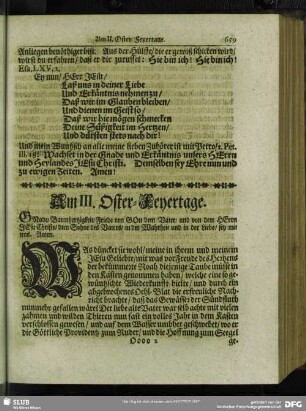 Am II. Oster-Feyertage. 659
Anliegen benöthiget bist: Aus der Hülffe/ die er gewiß schicken wird/
wirst du erfahren/ daß er dir zuruffet: Hie bin ich! Hie bin ich!
Esa. LXV, 1.
Ey nun/ HErr JEsu/
Laß uns in deiner Liebe
Und Erkäntniß nehmen zu/
Daß wir im Glauben bleiben/
Und dienen im Geist so/
Daß wir hie mögen schmecken
Deine Süßigkeit im Hertzen/
Und dürsten stets nach dir!
Und mein Wunsch an alle meine lieben Zuhörer ist mit Petro/ 2. Pet.
III. 18: Wachset in der Gnade und Erkäntnis unsers HErrn
und Heylandes JEsu Christi. Demselben sey Ehre nun und
zu ewigen Zeiten. Amen!
Am III. Oster-Feyertage.
GNade/ Barmhertzigkeit/ Friede von GOtt dem Vater/ und von dem HErrn
JEsu Christo/ dem Sohne des Vaters/ in der Wahrheit und in der Liebe/ sey mit
Amen.
WAs düncket sie wohl/ meine in ihrem und meinem
JEsu Geliebte/ mit was vor Freude des Hertzens
der bekümmerte Noah diejenige Taube müsse in
den Kasten genommen haben/ welche eine so ge-
wünschte Wiederkunfft hielte/ und durch ein
abgebrochenes Oehl-Blat die erfreuliche Nach-
richt brachte/ daß das Gewässer der Sündfluth
nunmehr gefallen wäre! Der liebe alte Vater war selb acht mit vielen
zahmen und wilden Thieren nun fast ein volles Jahr in dem Kasten
verschlossen gewesen/ und auf dem Wasser umbher geschwebet/ wo er
die Göttliche Providenz zum Ruder/ und die Hoffnung zum Seegel
Oooo 2 ge-
SLUB
Wir führen Wissen.
DFG